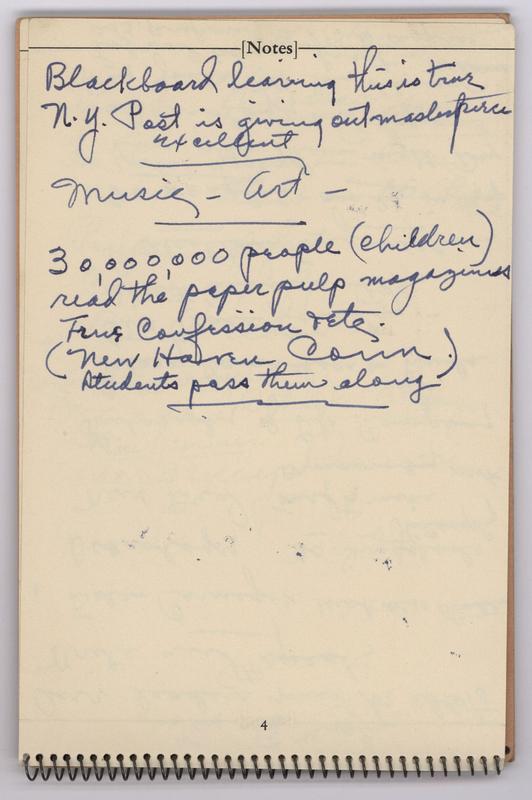 [Notes]
Blackboard learning this is true
N.Y. Post is giving out masterpiece
excellent
Music - Art -
30,000,000 people (children)
read the paper pulp magazines
True Confession & etc.
(New Haven Conn.)
Students pass them along
4